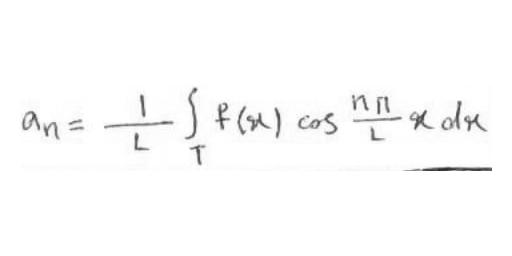 aₙ = 1/L ∫_T f(x) cos nπ/L x dx